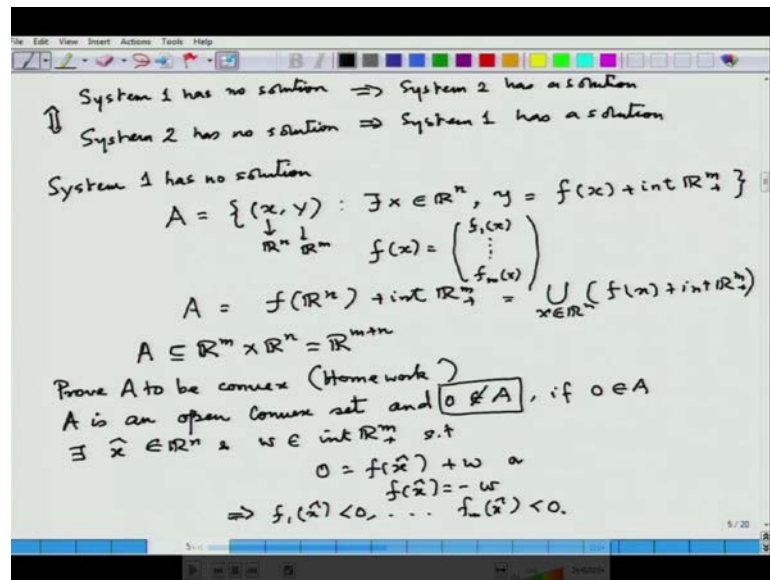 File Edit View Insert Actions Tools Help
System 1 has no solution ⟹ System 2 has a solution
⇕
System 2 has no solution ⟹ System 1 has a solution
System 1 has no solution
A = {(x, y) : ∃ x ∈ ℝⁿ, y = f(x) + int ℝ₊ᵐ}
↓ ↓
ℝⁿ ℝᵐ
f(x) = (f₁(x) ⋮ fₘ(x))
A = f(ℝⁿ) + int ℝ₊ᵐ = ⋃ x∈ℝⁿ (f(x) + int ℝ₊ᵐ)
A ⊆ ℝᵐ × ℝⁿ = ℝᵐ⁺ⁿ
Prove A to be convex (Home work)
A is an open convex set and 0 ∉ A, if 0 ∈ A
∃ x̂ ∈ ℝⁿ & w ∈ int ℝ₊ᵐ s.t
0 = f(x̂) + w or
f(x̂) = - w
⟹ f₁(x̂) < 0, ... fₘ(x̂) < 0.
5 / 20